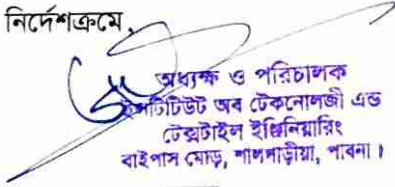 নির্দেশক্রমে,
অধ্যক্ষ ও পরিচালক
ইন্সটিটিউট অব টেকনোলজী এন্ড
টেক্সটাইল ইঞ্জিনিয়ারিং
বাইপাস মোড়, শালগাড়ীয়া, পাবনা।